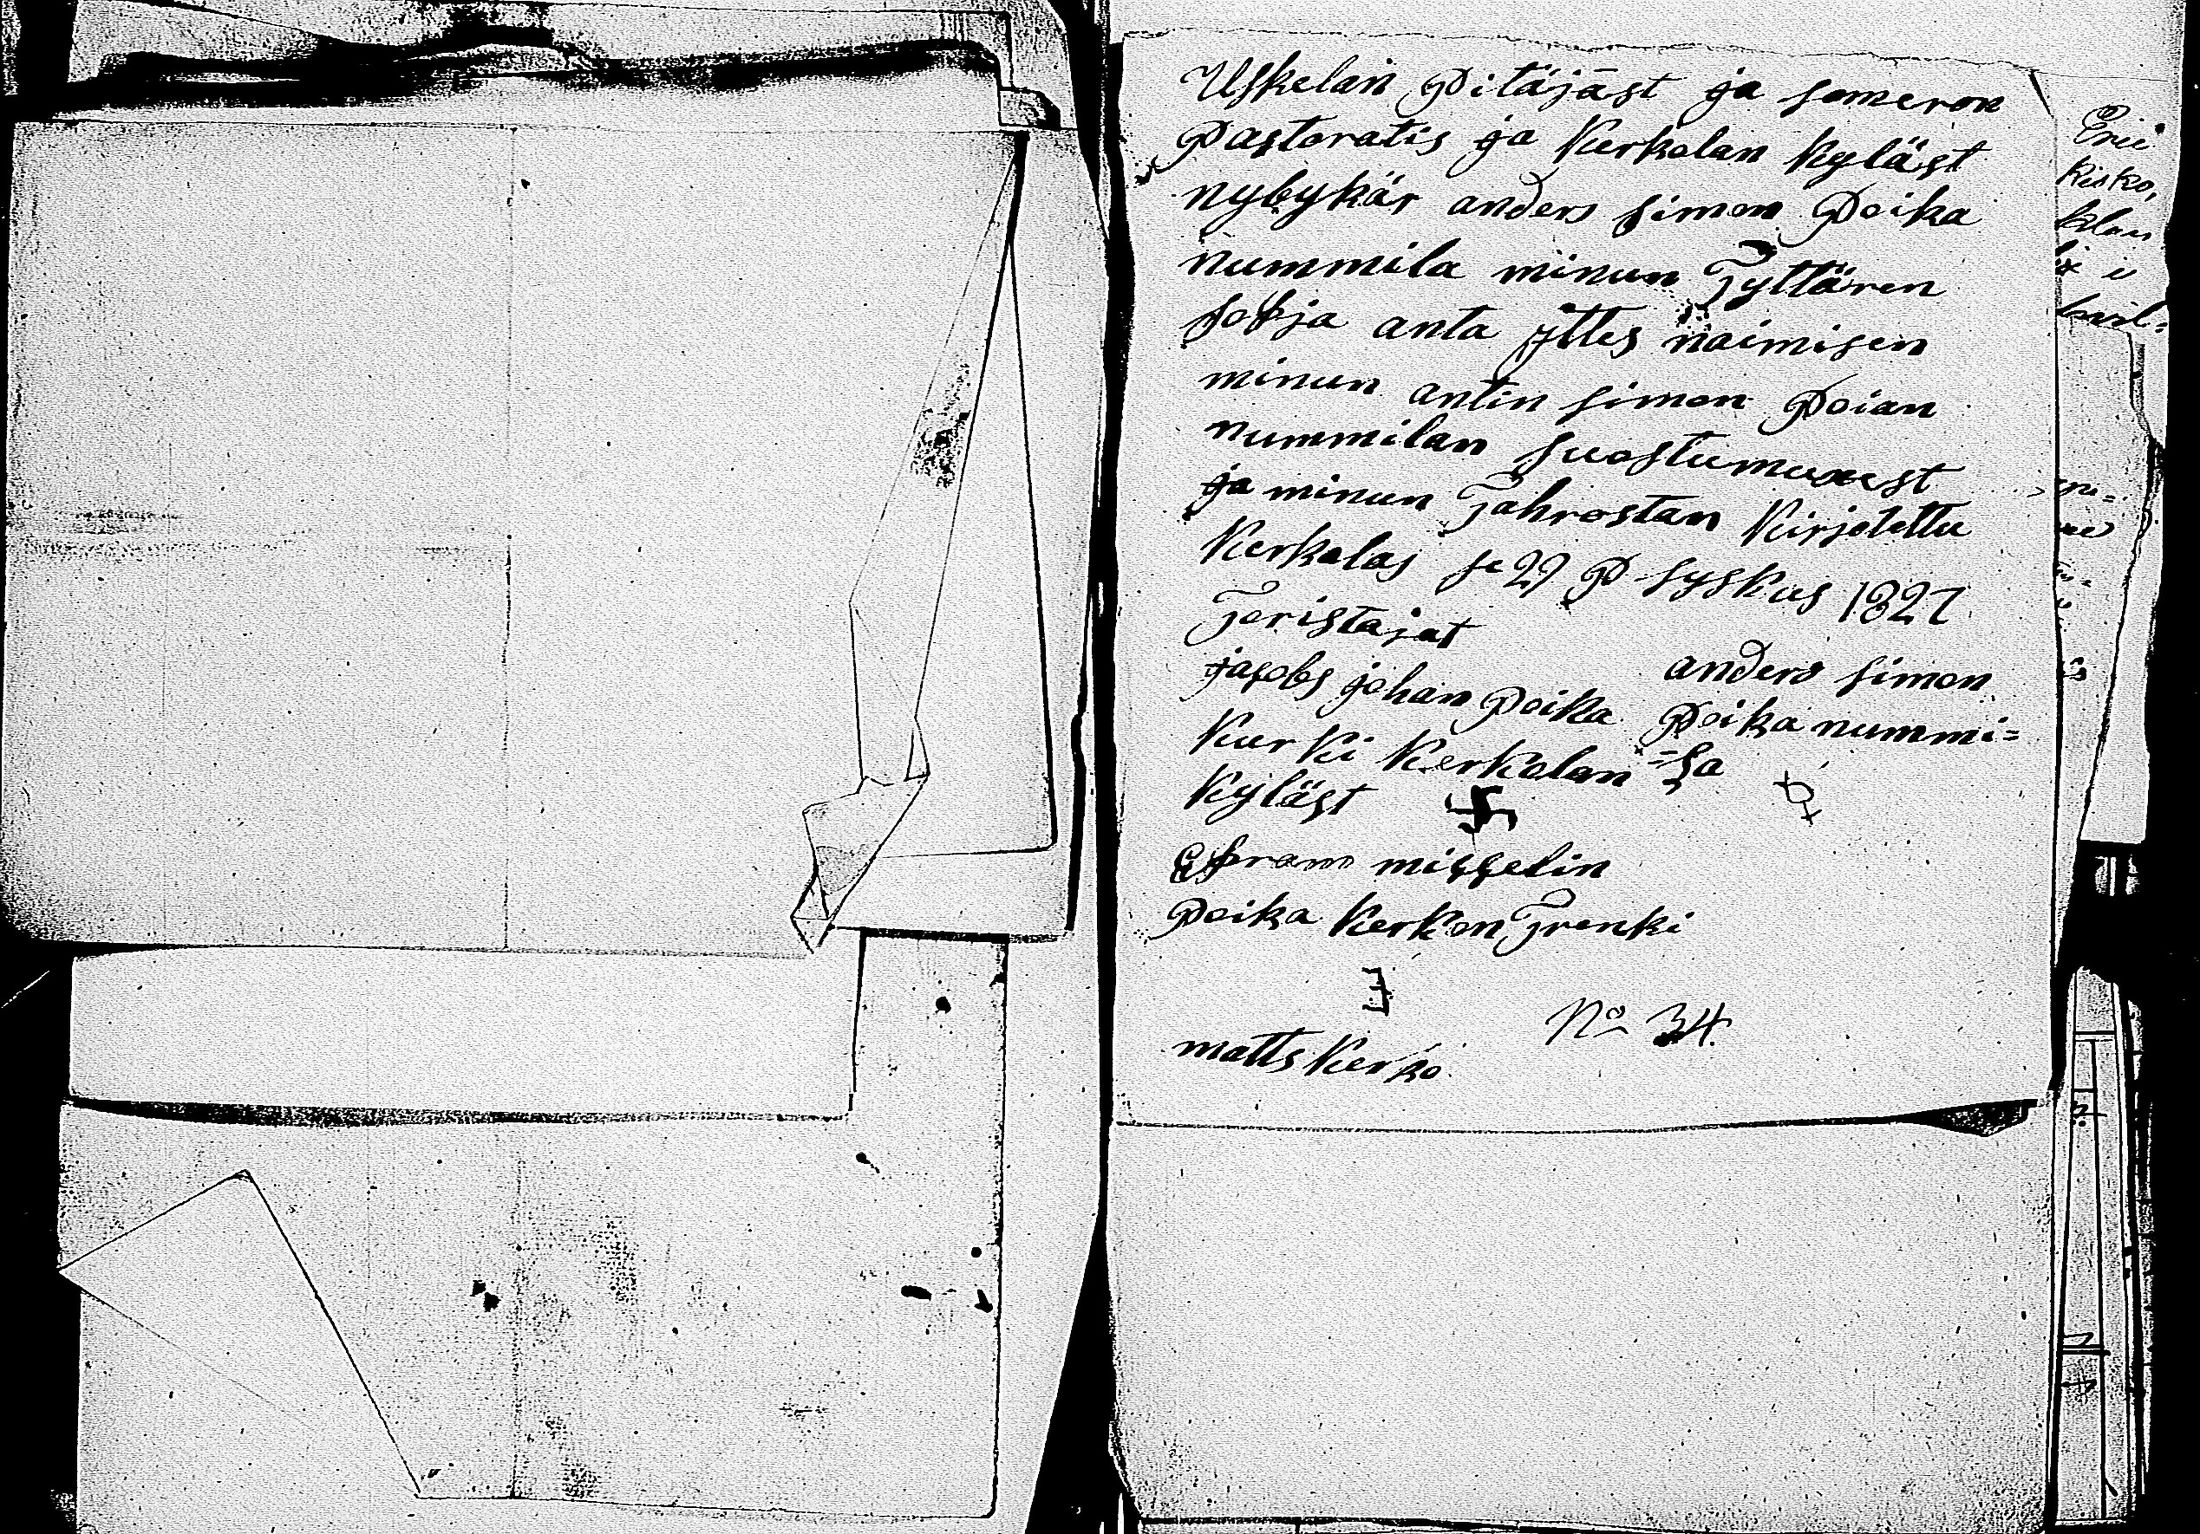 Uskelan Pitäjäst ja someron
Pastoratis ja Kerkolan Kyläst
nybykär anders simon Poika
nummila minun Tyttären
sofja anta ittes naimisen
minun antin simon Poian
nummilan suostumuxest
ja minun Tahrostan Kirjotettu
Kerkolas se 29 P syskus 1827
Toristajat
anders simon
jacobs johan Poika Poika nummi=
Kurki Kerkolan =la
Kyläst
Efram misselin
Poika Kerkon Trenki
No 34.
matts Kerko
Eric
Kisko,